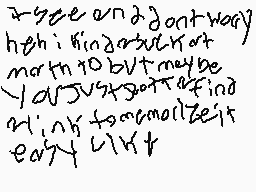 I see and dont worry
heh i kinda suck at
math to but maybe
you just gotta find
a link to memorize it
easy like